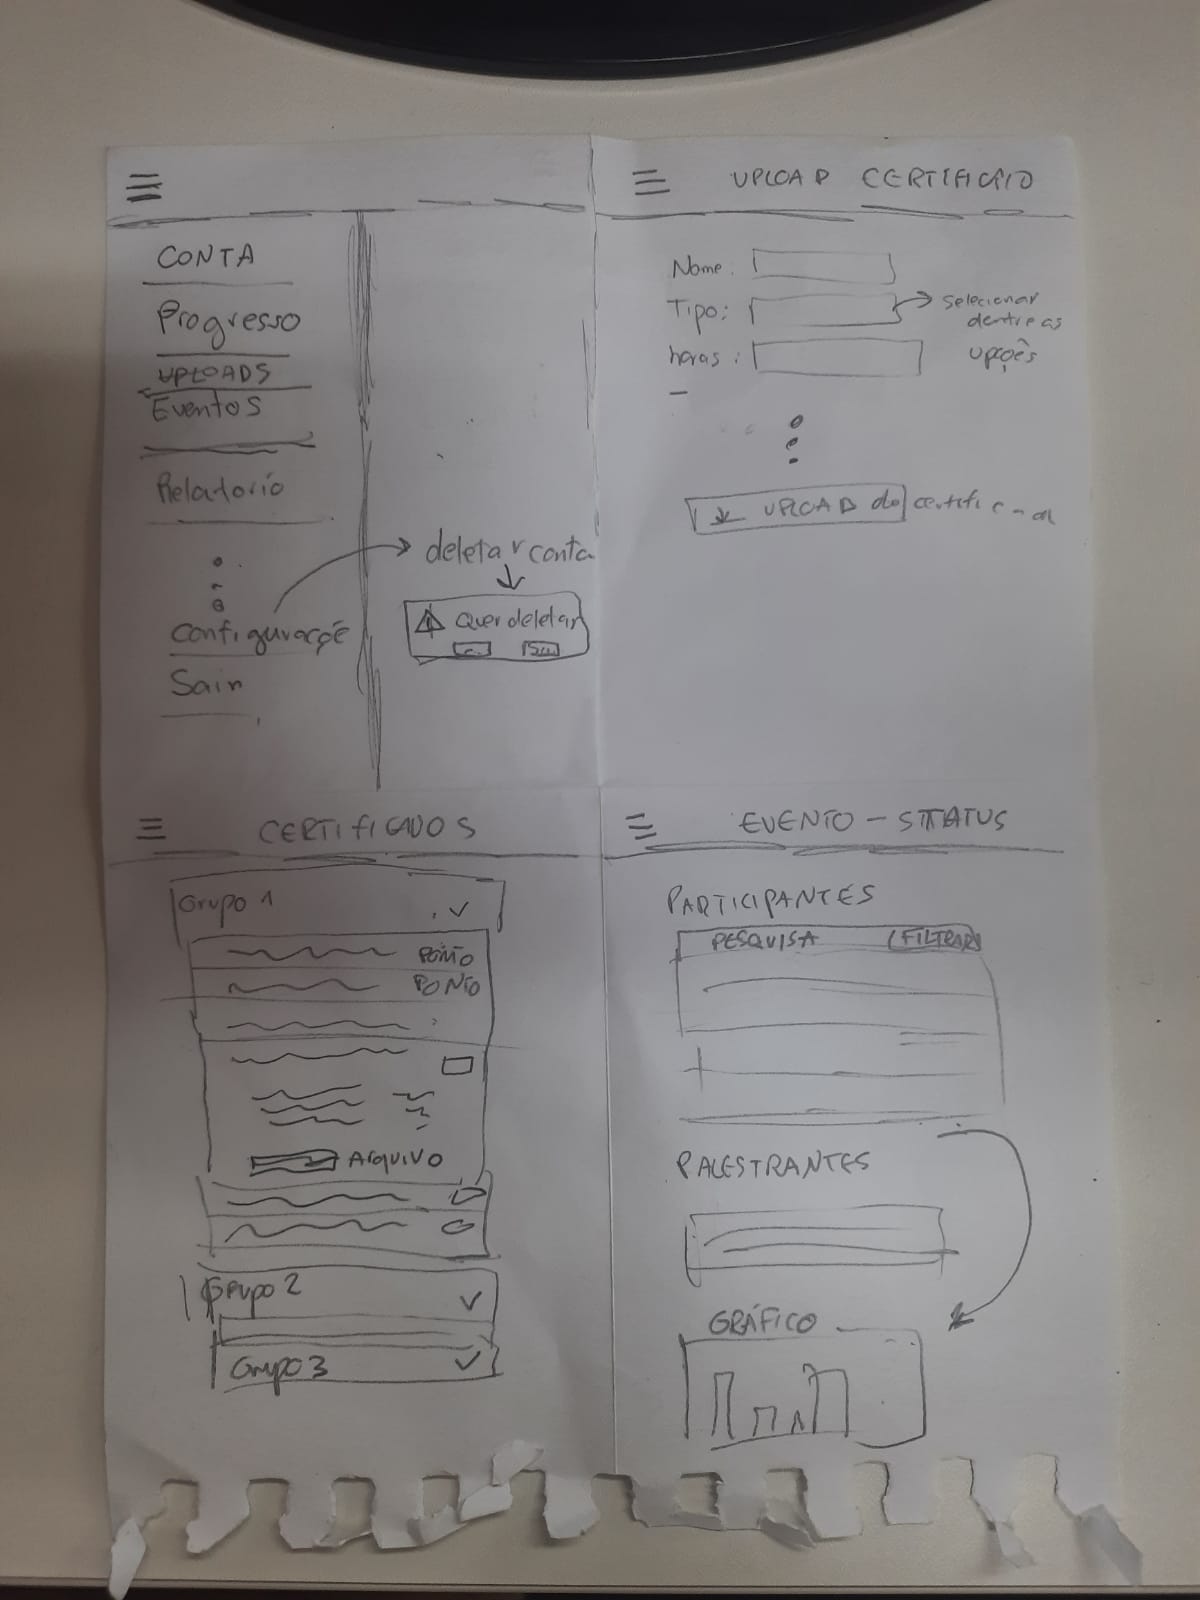 CONTA
Progresso
UPLOADS
Eventos
Relatorio
Configuraçõe
Sair
deletar conta
Quer deletar
UPLOAD CERTIFICADO
Nome:
Tipo:
selecionar
dentre as
opções
horas:
UPLOAD do certific
CERTIFICADOS
Grupo 1
PONTO
PONTO
ARQUIVO
Grupo 2
Grupo 3
EVENTO - STATUS
PARTICIPANTES
PESQUISA (FILTRAR)
PALESTRANTES
GRÁFICO